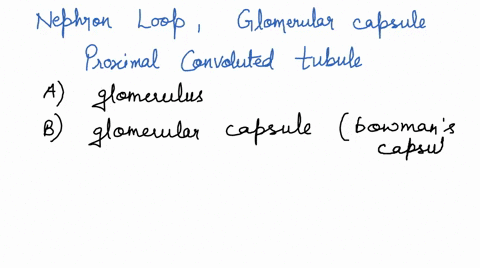 Nephron Loop, Glomerular capsule
Proximal Convoluted tubule
A) glomerulus
B) glomerular capsule (bowman's
capsu